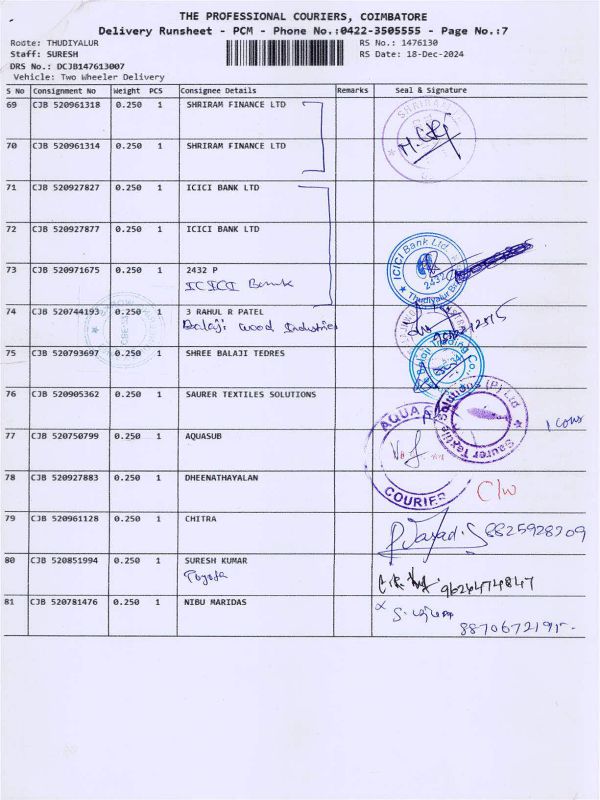 THE PROFESSIONAL COURIERS, COIMBATORE
Delivery Runsheet - PCM - Phone No.:0422-3505555 - Page No.:7
Route: THUDIYALUR
RS No.: 1476130
Staff: SURESH
RS Date: 18-Dec-2024
DRS No.: DCJB147613007
Vehicle: Two Wheeler Delivery
S No Consignment No Weight PCS Consignee Details Remarks Seal & Signature
69 CJB 520961318 0.250 1 SHRIRAM FINANCE LTD
SHRIRAM
70 CJB 520961314 0.250 1 SHRIRAM FINANCE LTD
71 CJB 520927827 0.250 1 ICICI BANK LTD
72 CJB 520927877 0.250 1 ICICI BANK LTD
ICICI Bank Ltd
2432
Thudiyalur
73 CJB 520971675 0.250 1 2432 P
ICICI Bank
74 CJB 520744193 0.250 1 3 RAHUL R PATEL
Balaji Wood Industries
75 CJB 520793697 0.250 1 SHREE BALAJI TEDRES
Balaji Trading Co.
76 CJB 520905362 0.250 1 SAURER TEXTILES SOLUTIONS
Saurer Textile Solutions (P) Ltd
1 Cons
77 CJB 520750799 0.250 1 AQUASUB
AQUA
COURIER
78 CJB 520927883 0.250 1 DHEENATHAYALAN
C/w
79 CJB 520961128 0.250 1 CHITRA
8825928209
80 CJB 520851994 0.250 1 SURESH KUMAR
Toyota
9626474847
81 CJB 520781476 0.250 1 NIBU MARIDAS